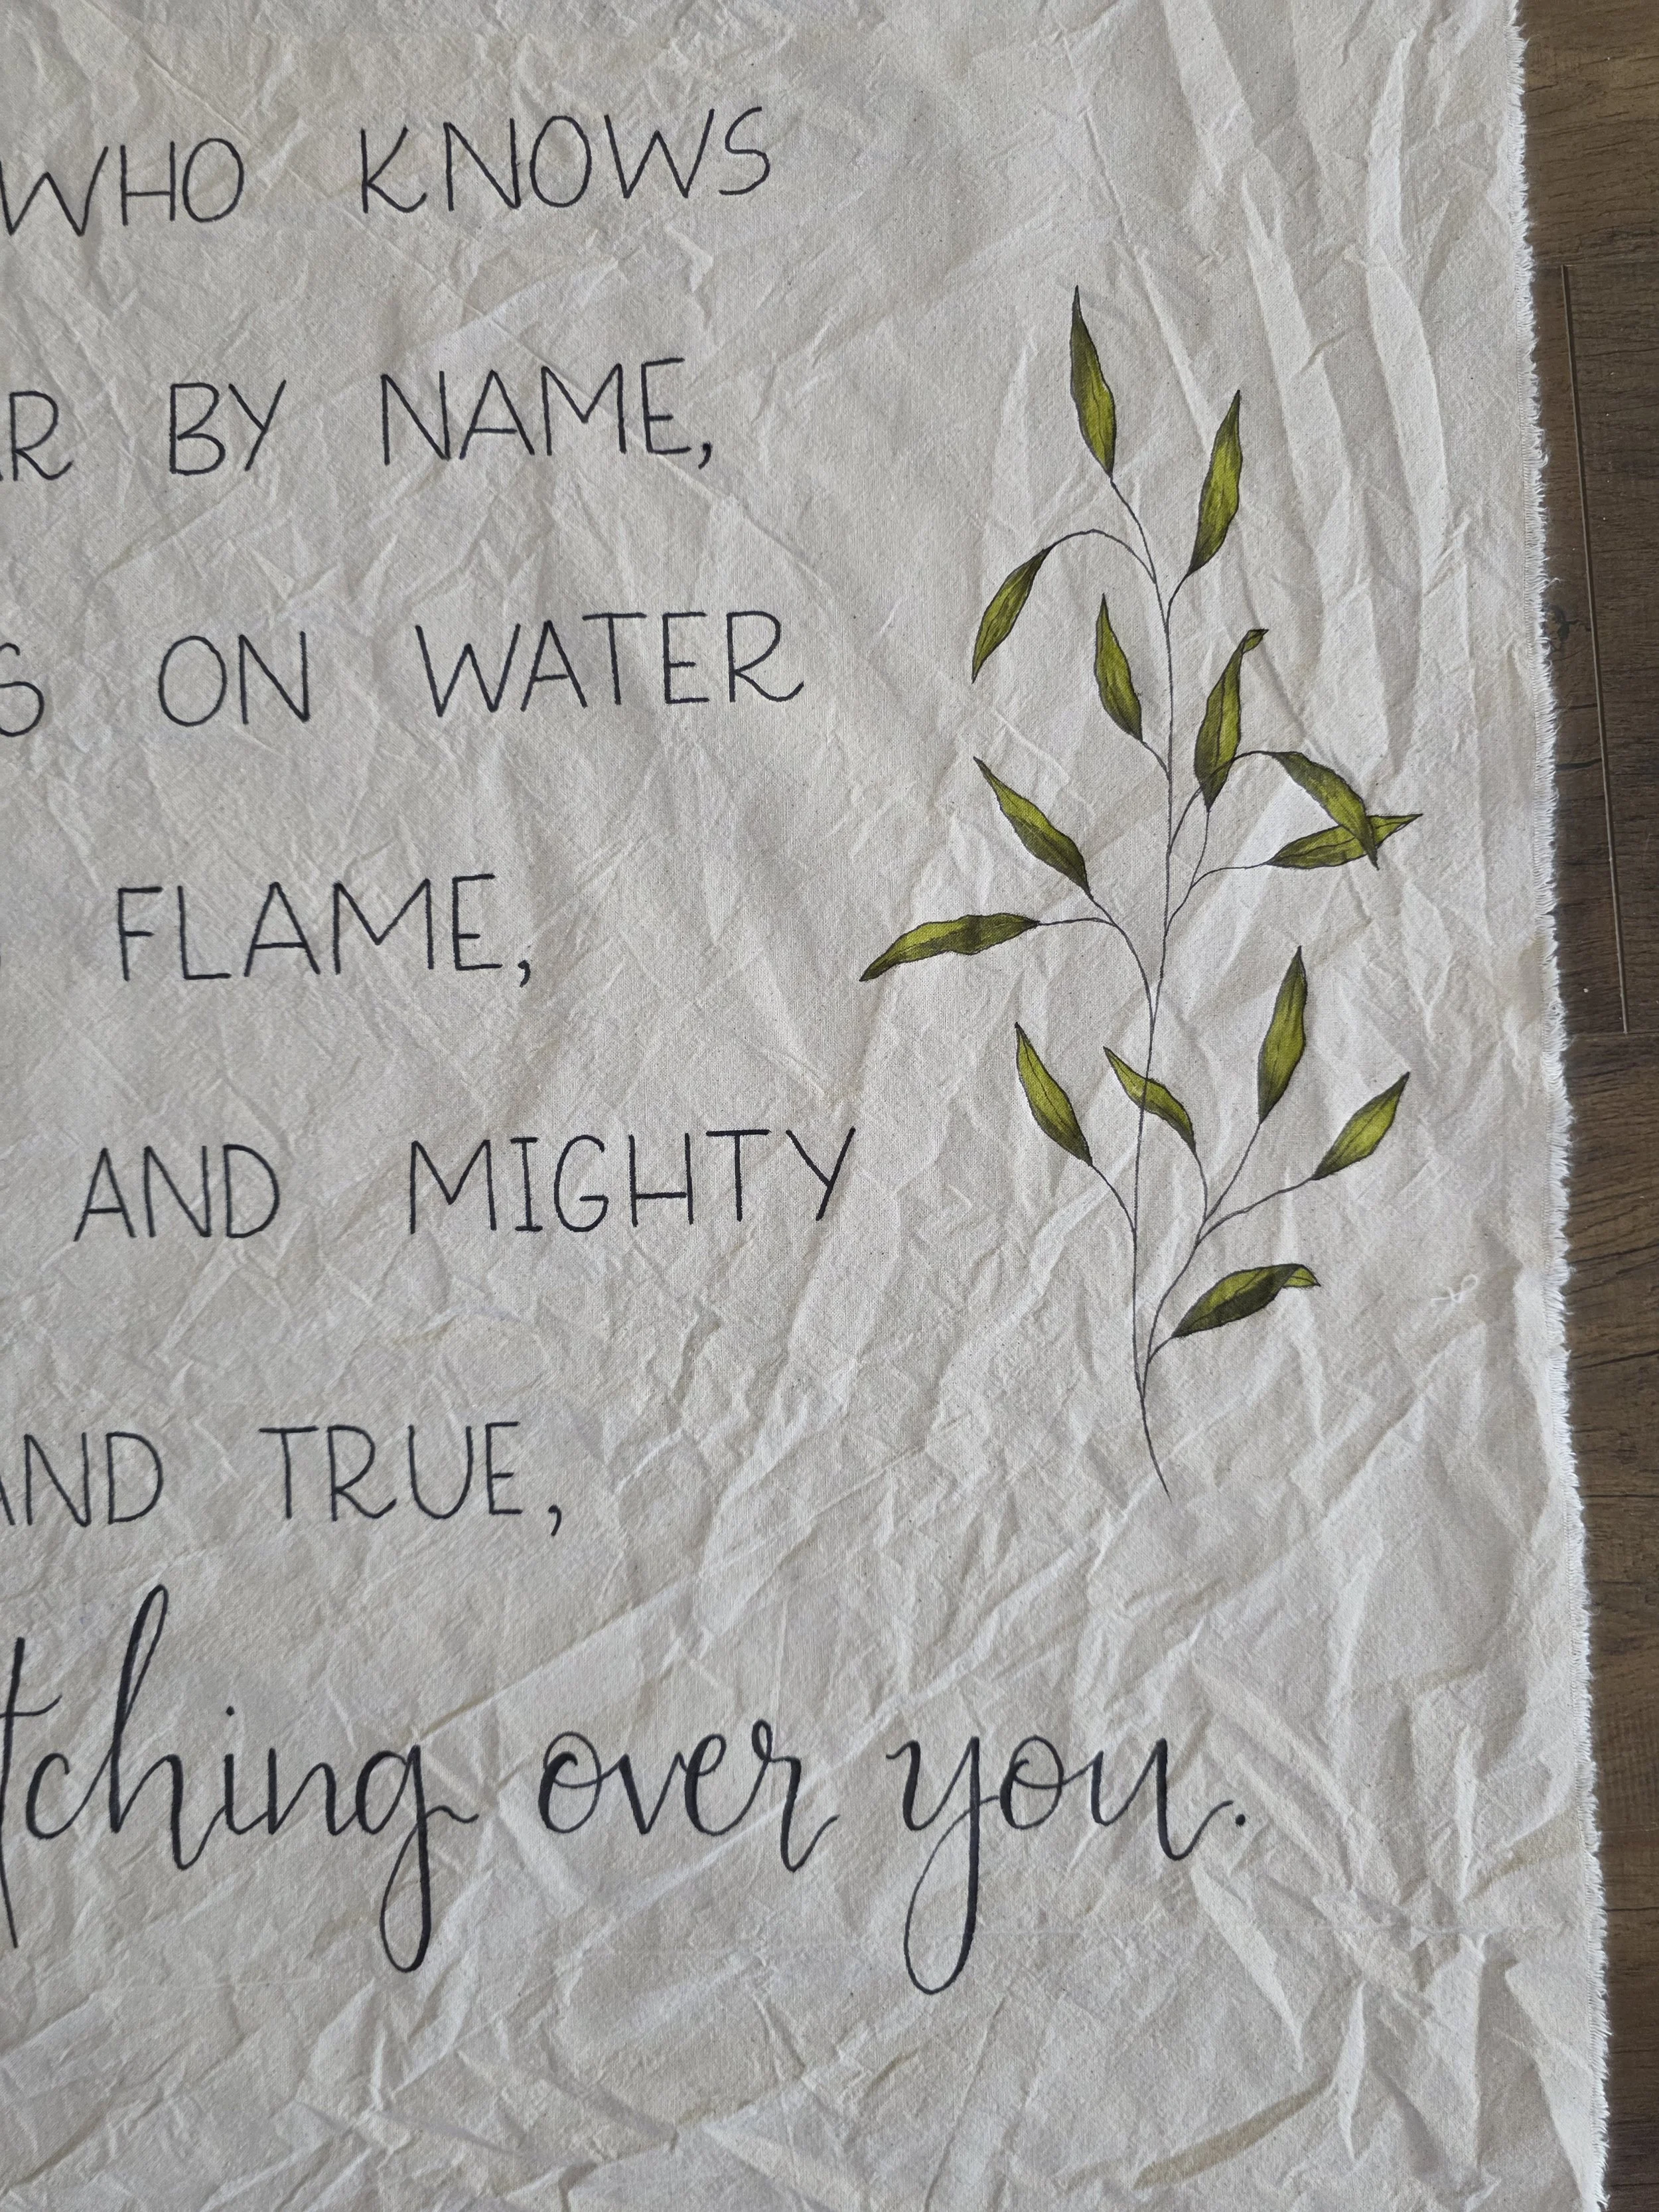 WHO KNOWS
BY NAME,
ON WATER
FLAME,
AND MIGHTY
AND TRUE,
over you.